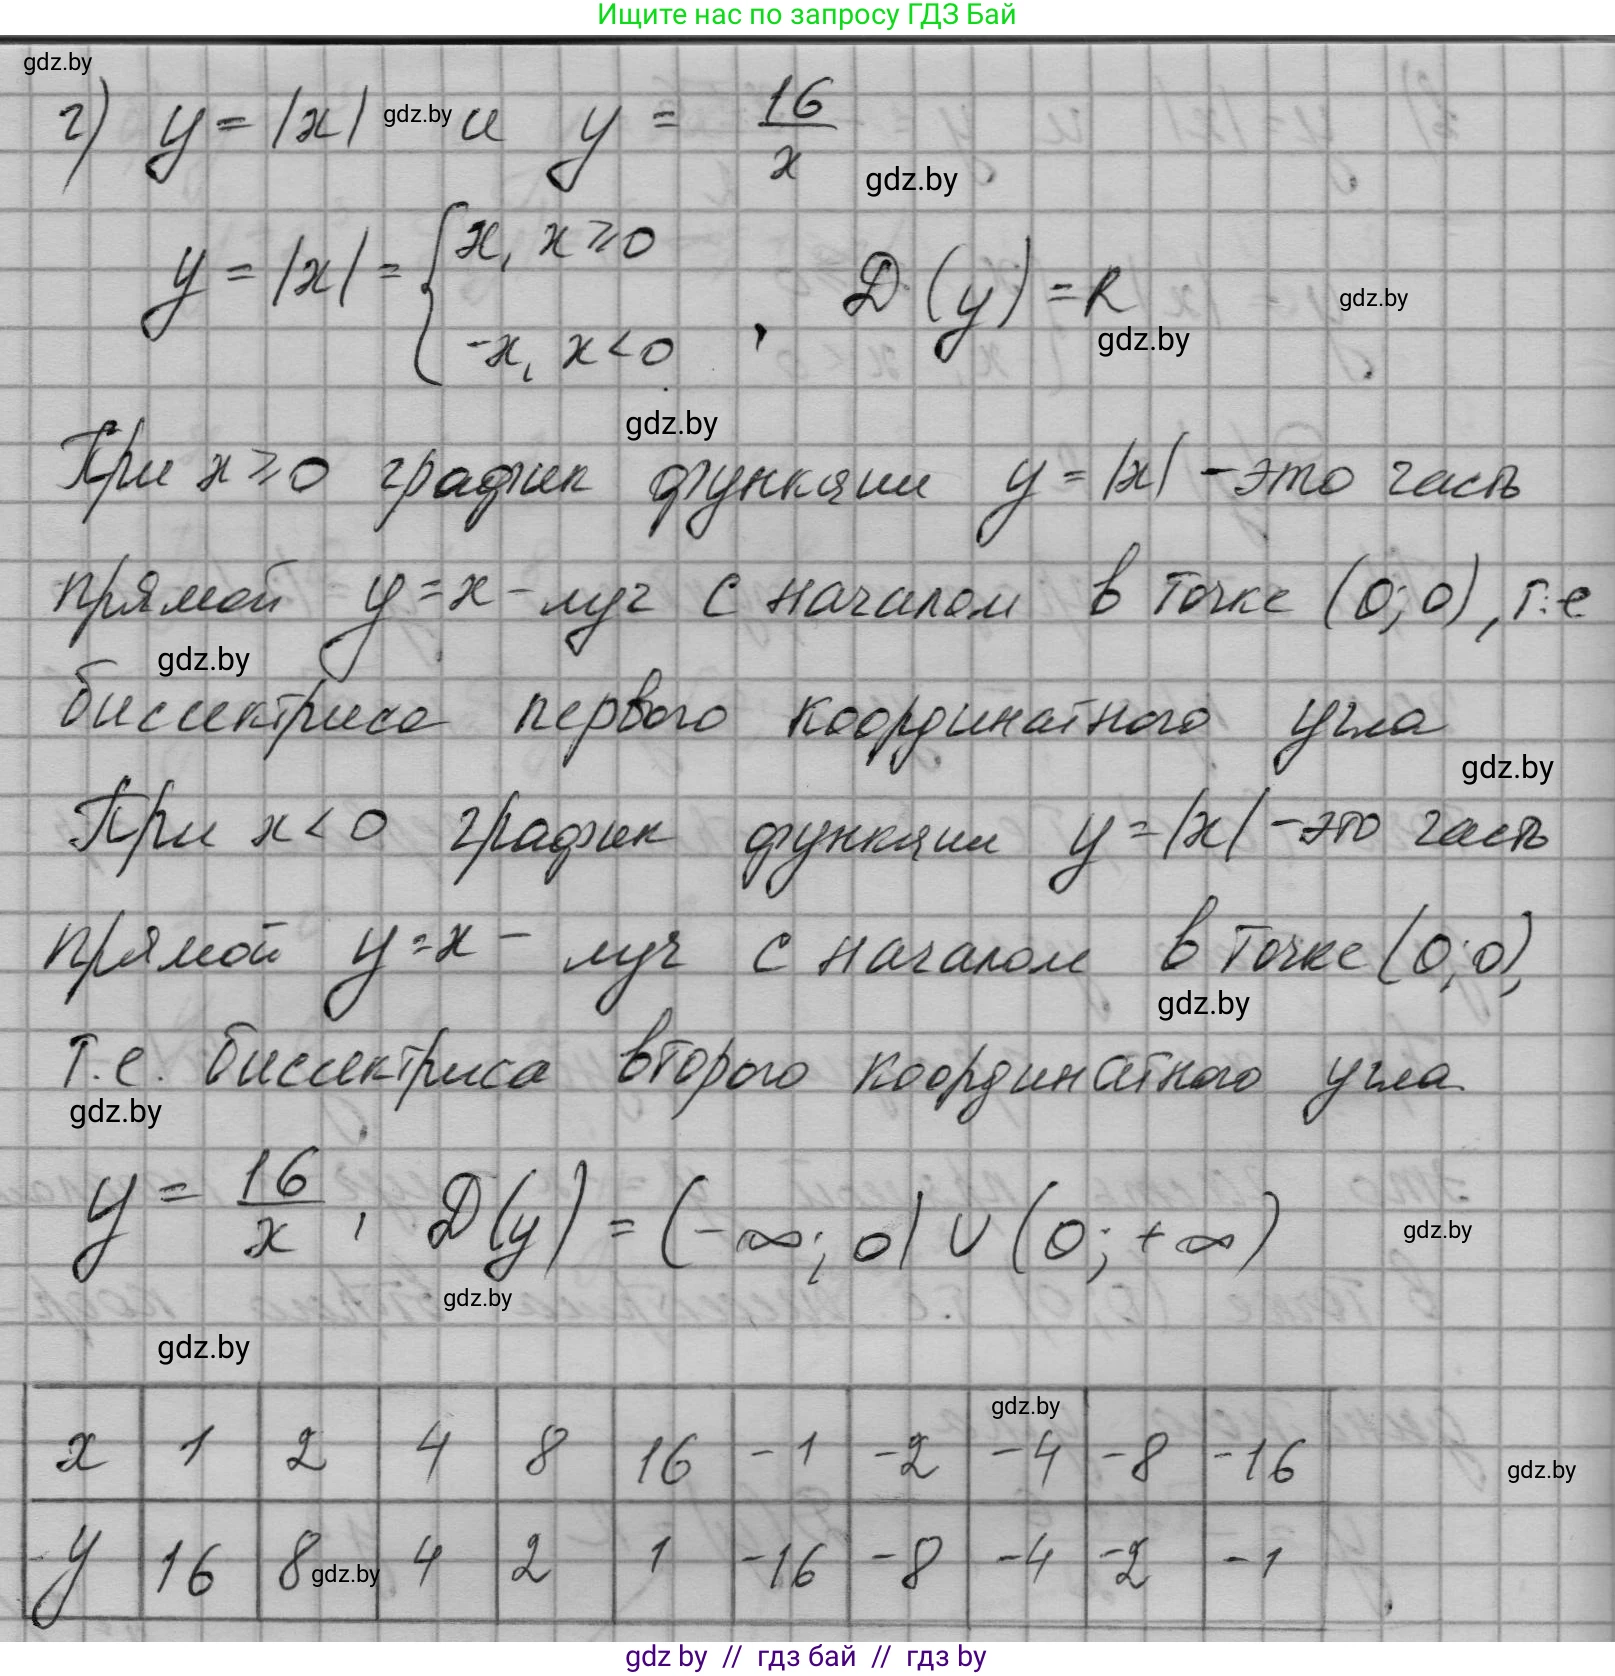 Ищите нас по запросу ГДЗ Бай
gdz.by
г) y = |x| gdz.by и y = 16/x
gdz.by
y = |x| = { x, x ≥ 0
-x, x < 0 , D(y) = R
gdz.by
gdz.by
gdz.by
При x ≥ 0 график функции y = |x| - это часть
прямой y = x - луч с началом в точке (0; 0), т.е
gdz.by
биссектриса первого координатного угла
gdz.by
При x < 0 график функции y = |x| - это часть
прямой y = x - луч с началом в точке (0; 0),
gdz.by
т.е. биссектриса второго координатного угла
gdz.by
y = 16/x , D(y) = (-∞; 0) ∪ (0; +∞)
gdz.by
gdz.by
gdz.by
gdz.by
x 1 2 4 8 16 -1 -2 -4 -8 -16
gdz.by
y 16 8 gdz.by 4 2 1 -16 -8 -4 -2 -1
gdz by // гдз бай // гдз by